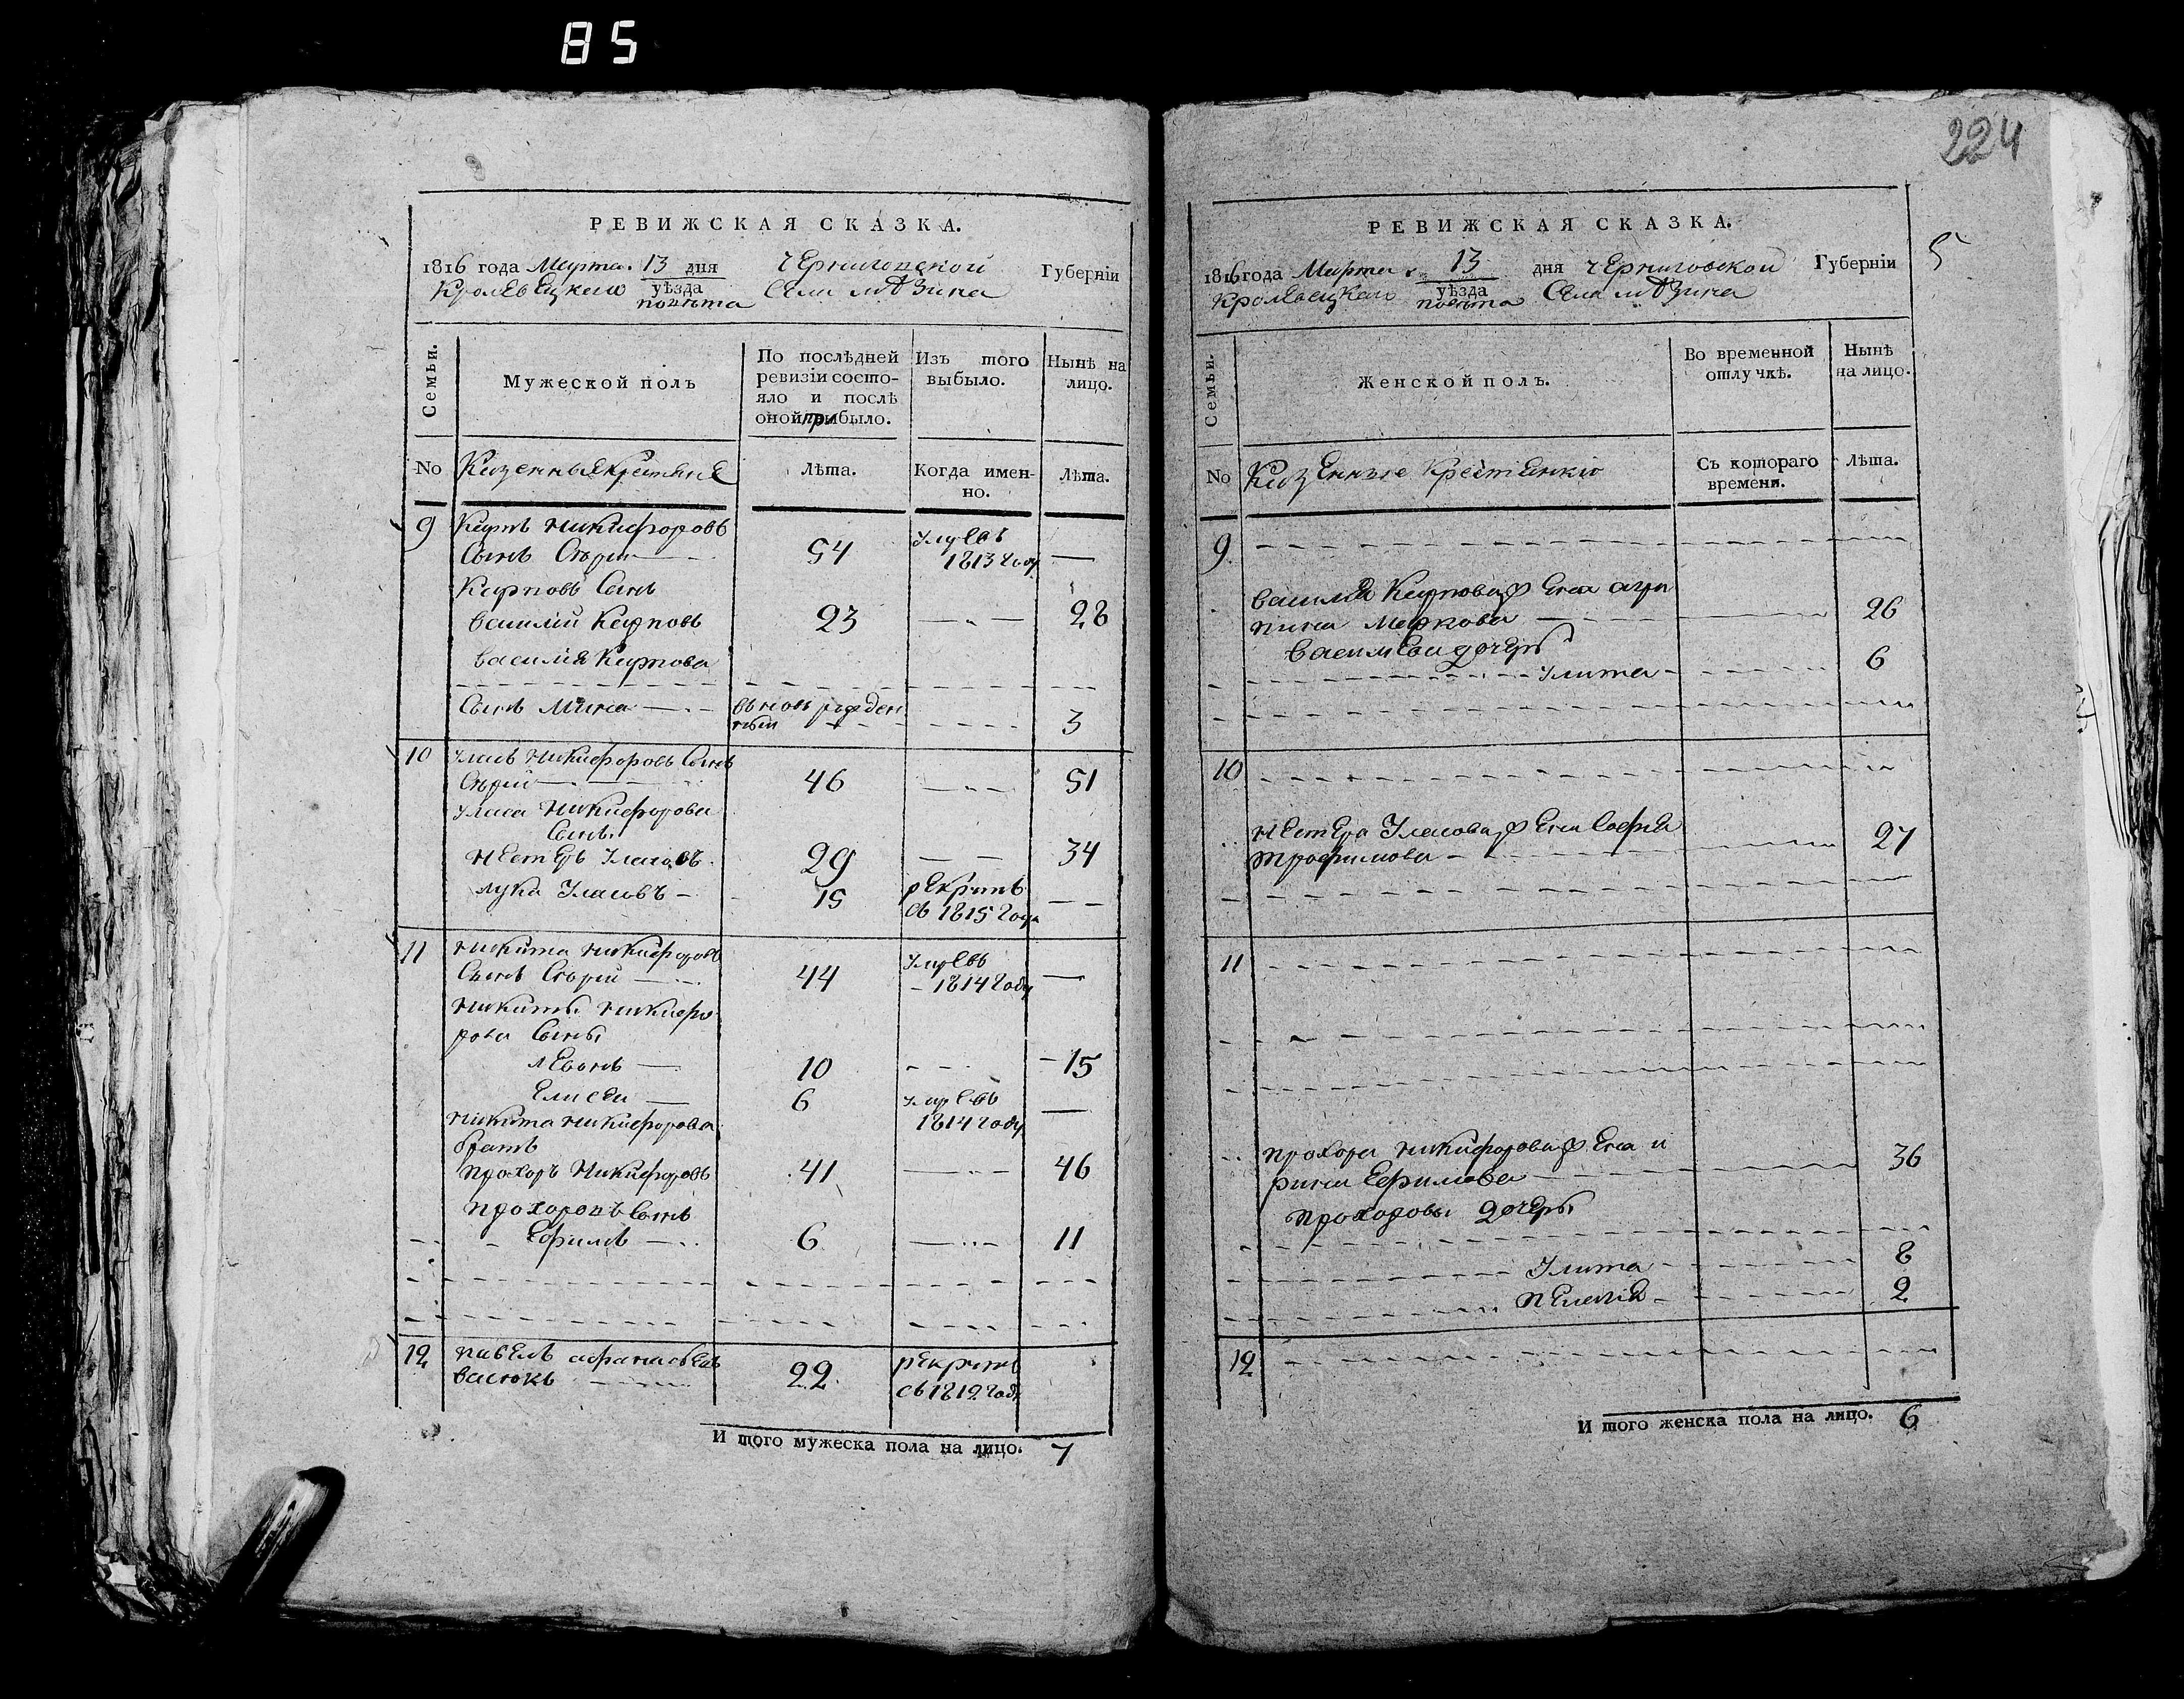 85
224
РЕВИЖСКАЯ СКАЗКА.
1816 года Марта 13 дня Черниговской Губерніи
Кролевецкаго уѣзда повѣта Села
Семьи.
Мужеской полъ
По послѣдней
ревизіи состо-
яло и послѣ
оной прибыло.
Изъ того
выбыло.
Нынѣ на
лицо.
No Казенные крестяне
Лѣта.
Когда имен-
но.
Лѣта.
9 Карпъ Никифоровъ
Сынъ 54 умревъ 1813 году —
Карповъ Сынъ
василий Карповъ 23 28
василия Карпова
Сынъ Мина вновь рожден
ный 3
10 Уласъ Никифоровъ Сынъ
46 51
Уласа Никифорова
Сынъ
Нестеръ Уласовъ 29 34
лука Уласовъ 15 рекрутъ
съ 1815 года
11 Никита Никифоровъ
Сынъ 44 умревъ
1814 году
Никиты Никифо
рова Сыны
левонъ 10 15
Елисеи 6 умревъ
1814 году
Никита Никифорова
братъ
Прохоръ Никифоровъ 41 46
Прохоровъ Сынъ
Ефимъ 6 11
12 павелъ
васюкъ 22 рекрутъ
съ 1812 году
И того мужеска пола на лицо. 7
РЕВИЖСКАЯ СКАЗКА.
5
1816 года Марта 13 дня Черниговской Губерніи
Кролевецкаго уѣзда повѣта Села
Семьи.
Женской полъ.
Во временной
отлучкѣ.
Нынѣ
на лицо.
No Казенные Крестянки
Съ котораго
времени.
Лѣта.
9
василия Карпова жена агри
пина Маркова 26
василева дочерь
Улита 6
10
Нестера Уласова жена София
трофимова 27
11
прохора Никифорова жена и
рина Ефимова 36
прохоровы дочеры
Улита 8
Пелагия 2
12
И того женска пола на лицо. 6